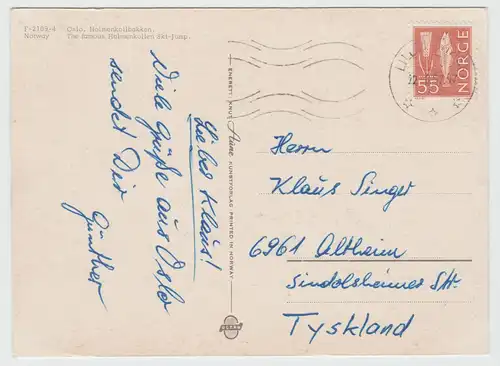 F-2189-4 Oslo. Holmenkollbakken.
Norway The famous Holmenkollen Ski-Jump.
Lieber Klaus!
Viele Grüße aus Oslo
sendet Dir
Günther
ENERETT: KNUT Aune KUNSTFORLAG PRINTED IN NORWAY
NORGE
55
Herrn
Klaus Singer
6961 Altheim
Sindolsheimer Str.
Tyskland